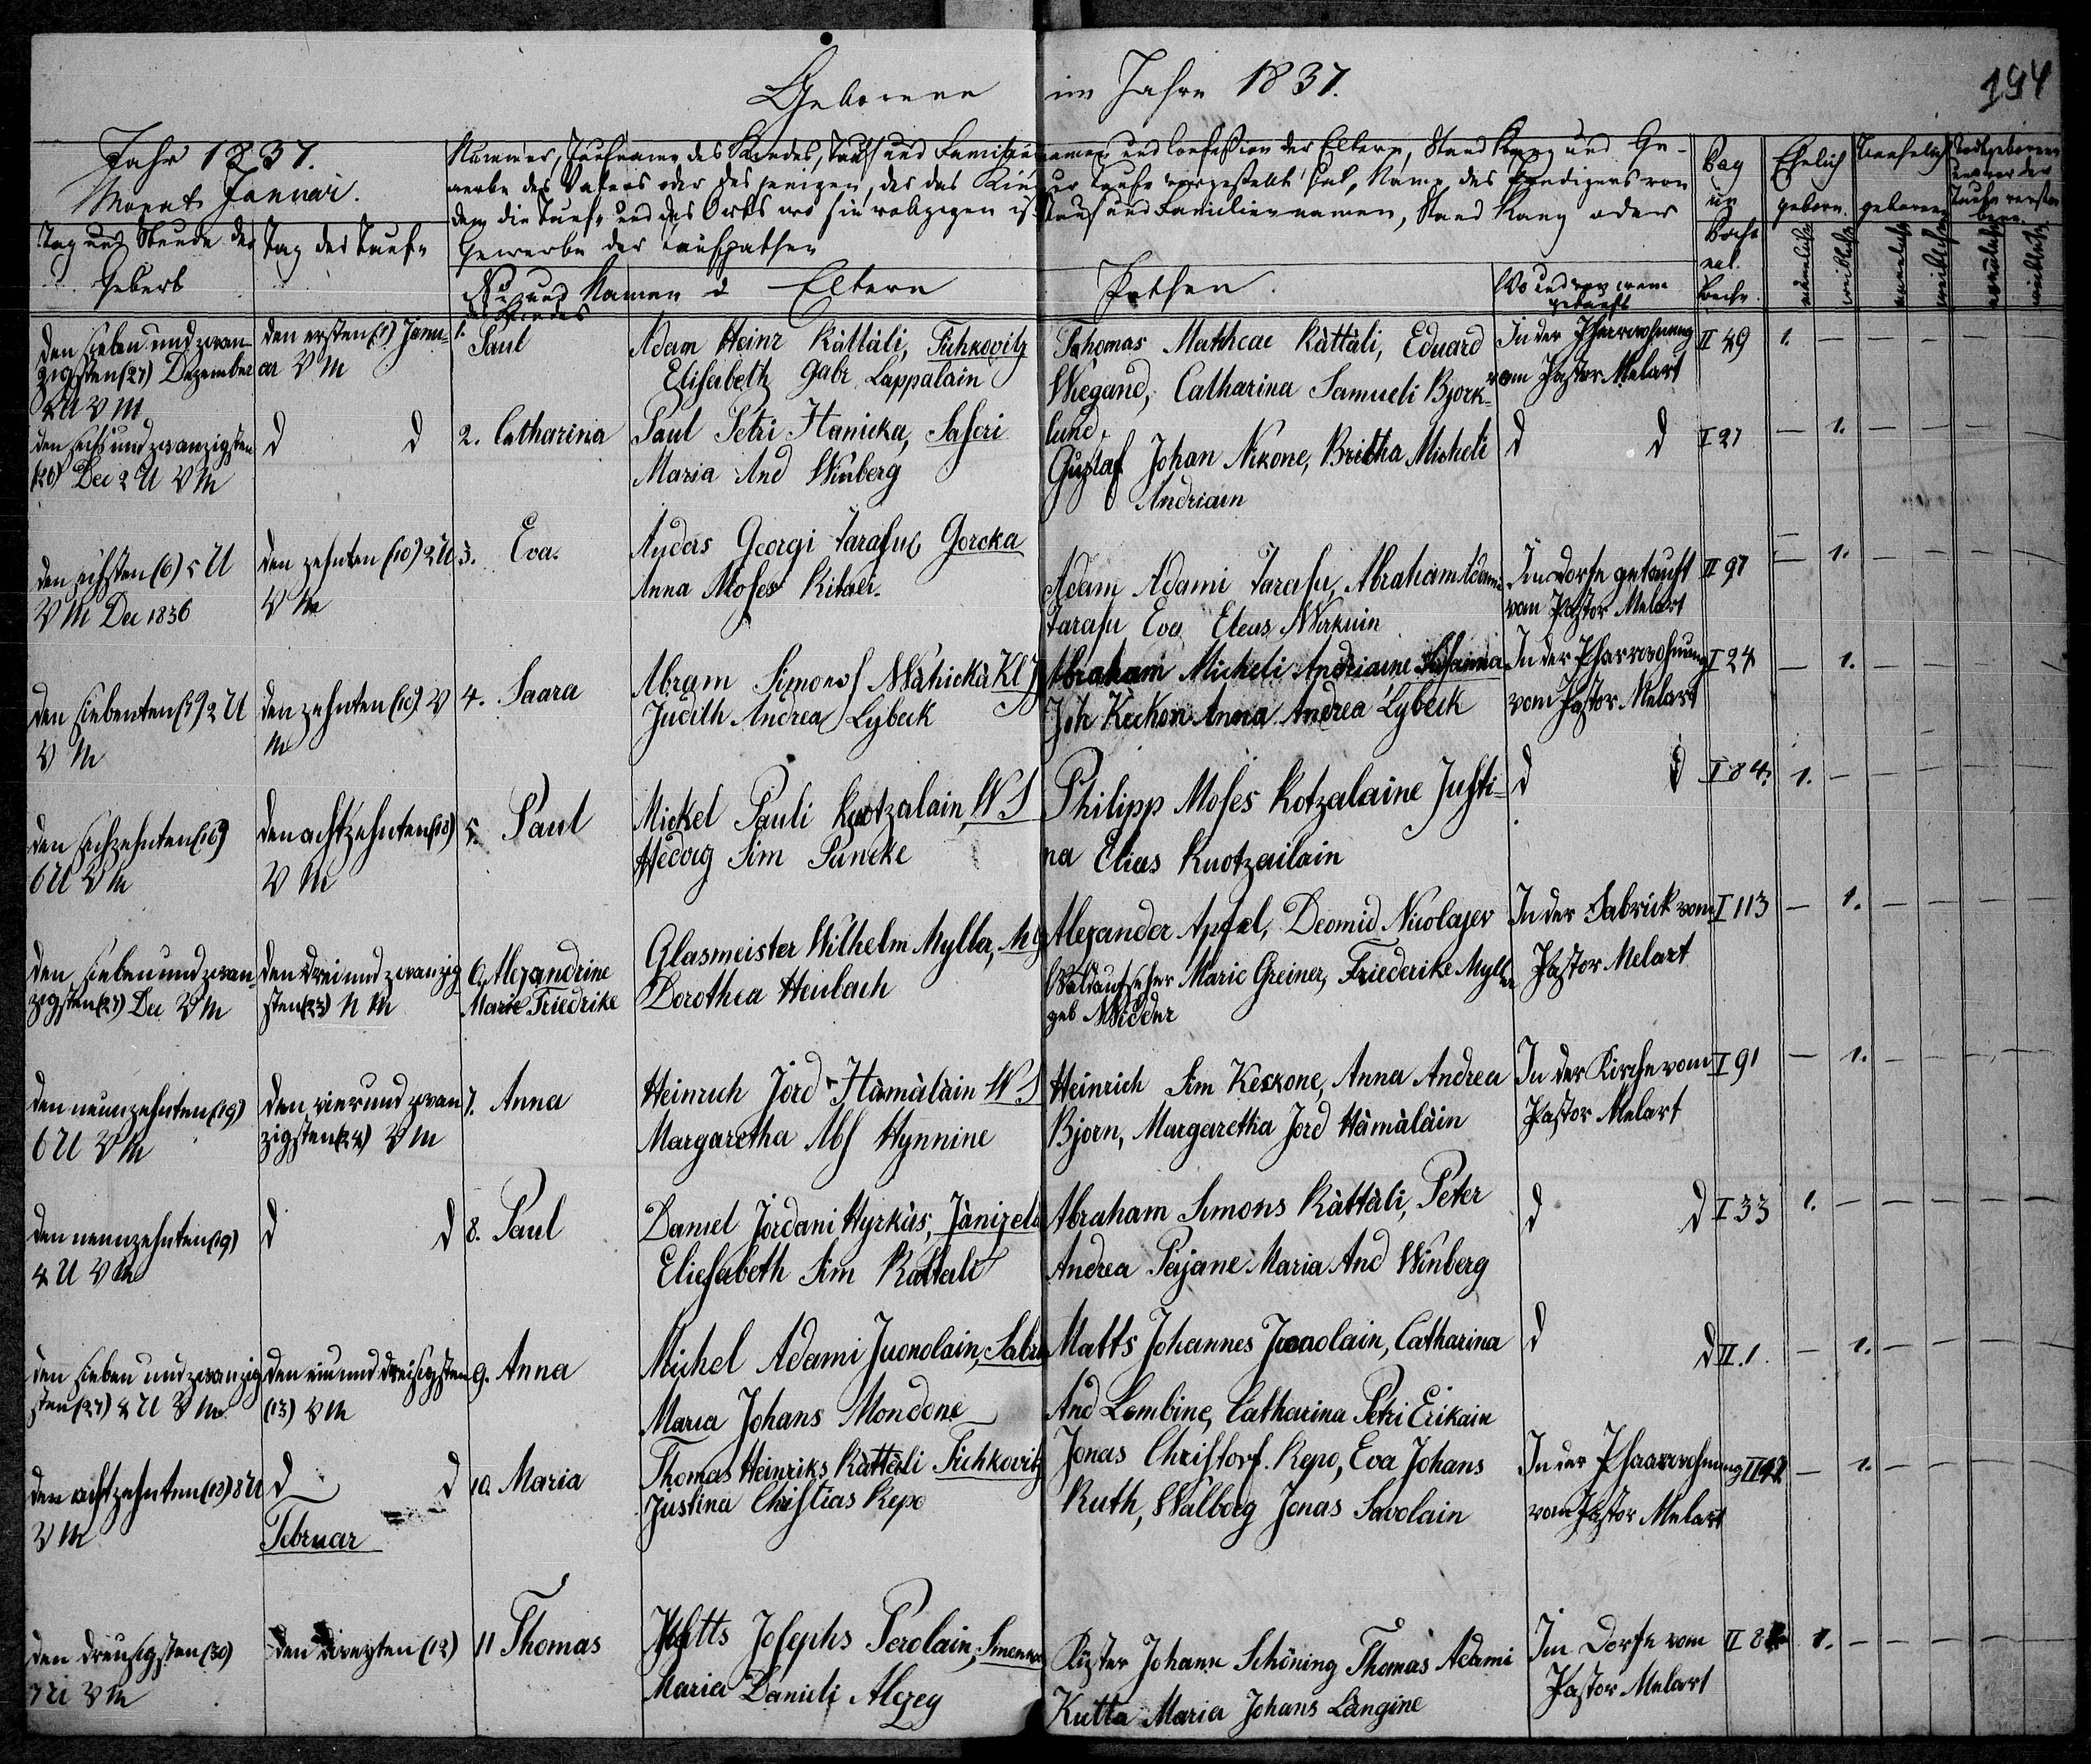 Geborene im Jahre 1837.
194
Jahr 1837.
Monat Januar.
Tag und Stunde der Geburt
Tag der Taufe
Nummer, Taufname des Kindes, Tauf und Familiennamen und Confession der Eltern, Stand Rang und Ge-
werbe des Vaters oder desjenigen, der das Kind zur Taufe vorgestellt hat, Name des Predigers von
dem die Taufe und des Ortes wo sie vollzogen ist Tauf und Familiennamen, Stand Rang oder
Gewerbe der Taufpathen
No und Namen d Kindes
Eltern
Pathen.
Wo und von wem getauft
Pag im
Ehelich geboren.
Unehelich geboren
Todtgeborene und vor der Taufe verstorbene
männliche
weibliche
männliche
weibliche
männliche
weibliche
den sieben und zwan-
zigsten (27) Dezember
4 U V M
den ersten (1) Janu-
ar V M
1. Paul
Adam Heinr Kättäli, Fuhkovitz
Elisabeth Gabr Lappalain
Thomas Matheae Kättäli, Eduard
Wiegand, Catharina Samueli Bjork-
lund,
In der Pfarrwohnung
vom Pastor Melart
II 49 1. — — — — —
den sechs und zwanzigsten
(26) Dec 2 U V M
d d
2. Catharina
Paul Petri Hanicka, Saseri
Maria And Winberg
Gustaf Johan Nikone, Britha Micheli
Andriain
d d
I 27 — 1. — — — —
den sechsten (6) 5 U
V M Dec 1836
den zehnten (10) 2 U
V M
3. Eva.
Anders Georgi Tarasu, Goroka
Anna Moses Kitaei.
Adam Adami Tarasu, Abraham Adami
Tarasu Eva Eleas Wirkuin
Im Dorfe getauft
vom Pastor Melart
II 97 — 1. — — — —
den siebenten (7) 2 U
V M
den zehnten (10) V
M
4. Saara
Abram Simons Wähickä Kl J
Judith Andrea Lybeck
Abraham Micheli Andriaine Susanna
Joh Keckon Anna Andrea Lybeck
In der Pfarrwohnung
vom Pastor Melart
I 24 — 1. — — — —
den sechzehnten (16)
6 U V M
den achtzehnten (18)
V M
5. Paul
Mickel Pauli Kuotzalain, W S
Hedvig Sim Puncke
Philipp Moses Kotzalaine Justi-
na Elias Kuotzailain
d d
I 84. 1. — — — — —
den sieben und zwan-
zigsten (27) Dec V M
den drei und zwanzig
sten (23) N M
6. Alexandrine
Marie Friedrike
Glasmeister Wilhelm Myller, M G
Dorothea Heubach
Alexander Apfel, Deomid Nicolajev
Waldaufseher Marie Greiner, Friederike Myller
geb Widdur
In der Fabrick vom
Pastor Melart
I 113 — 1. — — — —
den neunzehnten (19)
6 U V M
den vier und zwan
zigsten (24) V M
7. Anna
Heinrich Jord Hämäläin W S
Margaretha Abs Hynnine
Heinrich Sim Keskone, Anna Andrea
Bjorn, Margaretha Jord Hämäläin
In der Kirche vom
Pastor Melart
I 91 — 1. — — — —
den neunzehnten (19)
4 U V M
d d
8. Paul
Daniel Jordani Hyrkäs, Jänizelä
Eliesabeth Sim Kättäli
Abraham Simons Kättäli, Peter
Andrea Pajane Maria And Winberg
d d
I 33 1. — — — — —
den sieben und zwanzig
sten (27) 4 U V M
den ein und dreisigsten
(13) V M
9. Anna
Michel Adami Juonolain,
Maria Johans Mondone
Matts Johannes Juonolain, Catharina
And Lembine, Catharina Petri Erikain
d d
II. 1. — 1. — — — —
den achtzehnten (18) 8 U
V M
d d
10. Maria
Thomas Heinriks Kättäli Fuhkovitz
Justina Christias Repo
Jonas Christorf. Repo, Eva Johans
Ruth, Walborg Jonas Savolain
In der Pfaarwohnung
vom Pastor Melart
II 42 — 1. — — — —
Februar
den dreusigsten (30)
7 U V M
den (12)
11 Thomas
Matts Josephs Perolain,
Maria Danieli Alexey
Küster Johann Schöning Thomas Adami
Kutta Maria Johans Längine
Im Dorfe vom
Pastor Melart
II 8 1. — — — — —